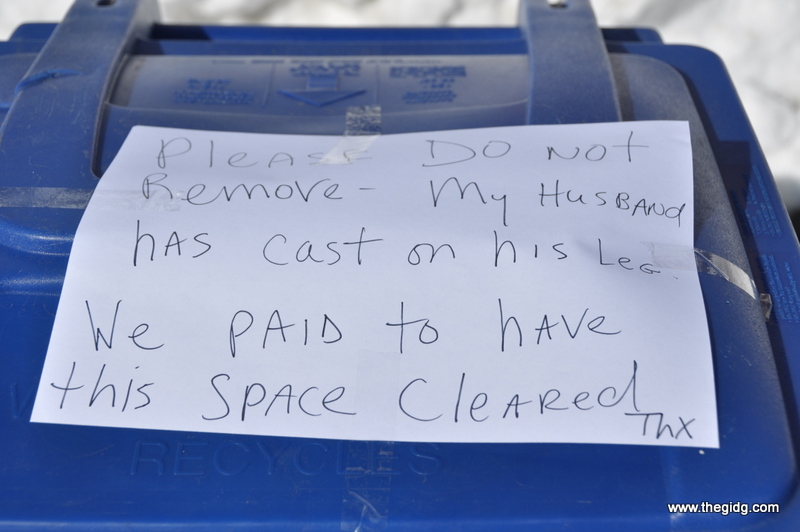 Please DO NOT
Remove - My HUSBAND
hAS cast on his Leg.
We PAID to hAVe
this SPACe CleARed
Thx
RECYCLES
www.thegidg.com